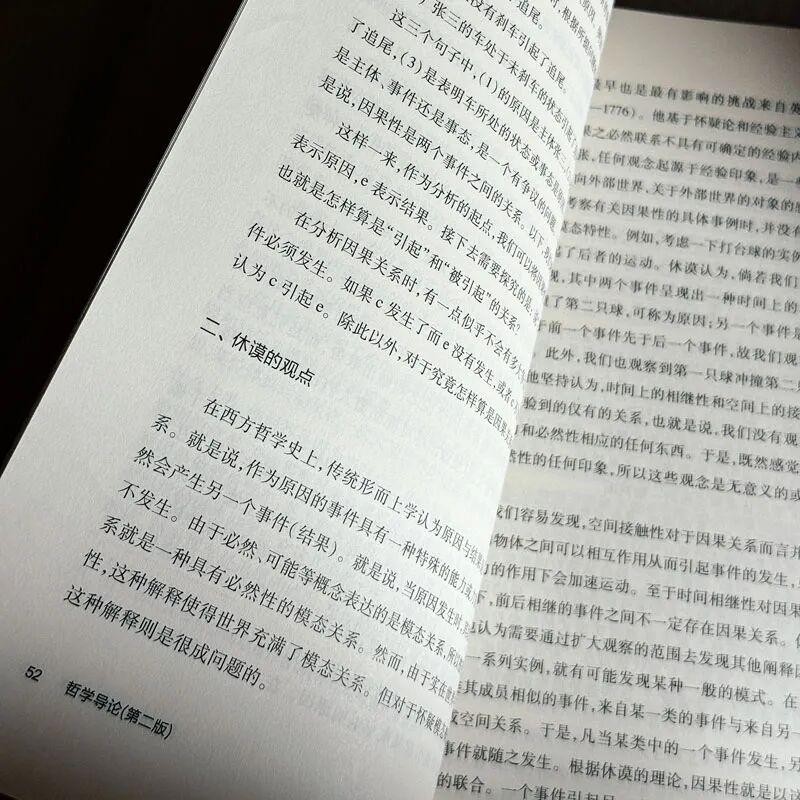 没有刹车引起了追尾。
张三的车处于未刹车的状态引起了
这三个句子中，(1)的原因是主体张三
了追尾，(3)是表明车所处的状态或事态是
是主体、事件还是事态，是一个有争议的问题
是说，因果性是两个事件之间的关系。以下，我
这样一来，作为分析的起点，我们可以
表示原因，e 表示结果。接下去需要探究的是：
也就是怎样算是“引起”和“被引起”的关系？
在分析因果关系时，有一点似乎不会有多大
件必须发生。如果 c 发生了而 e 没有发生，或者 c
认为 c 引起 e。除此以外，对于究竟怎样算是因果
二、休谟的观点
在西方哲学史上，传统形而上学认为原因与结果
系。就是说，作为原因的事件具有一种特殊的能力或
然会产生另一个事件(结果)。就是说，当原因发生时，
不发生。由于必然、可能等概念表达的是模态关系，所以
系就是一种具有必然性的模态关系。然而，由于实在
性，这种解释使得世界充满了模态关系。但对于怀疑模态
这种解释则是很成问题的。
52 哲学导论(第二版)
最早也是最有影响的挑战来自英
—1776)。他基于怀疑论和经验主义
果之必然联系不具有可确定的经验内
张，任何观念起源于经验印象，是一
向外部世界，关于外部世界的对象的
考察有关因果性的具体事例时，并没有
模态特性。例如，考虑一下打台球的实例
起了后者的运动。休谟认为，倘若我们
现，其中两个事件呈现出一种时间上的
了第二只球，可称为原因；另一个事件是
于前一个事件先于后一个事件，故我们观
。此外，我们也观察到第一只球冲撞第二
他坚持认为，时间上的相继性和空间上的接
验到的仅有的关系，也就是说，我们没有观
和必然性相应的任何东西。于是，既然感觉
然性的任何印象，所以这些观念是无意义的或
我们容易发现，空间接触性对于因果关系而言并
物体之间可以相互作用从而引起事件的发生，
力的作用下会加速运动。至于时间相继性对因果
下，前后相继的事件之间不一定存在因果关系。
也认为需要通过扩大观察的范围去发现其他阐释因
一系列实例，就有可能发现某种一般的模式。在
其成员相似的事件，来自某一类的事件与来自另一
或空间关系。于是，凡当某类中的一个事件发生，另
事件就随之发生。根据休谟的理论，因果性就是以这
的联合。一个事件引起另